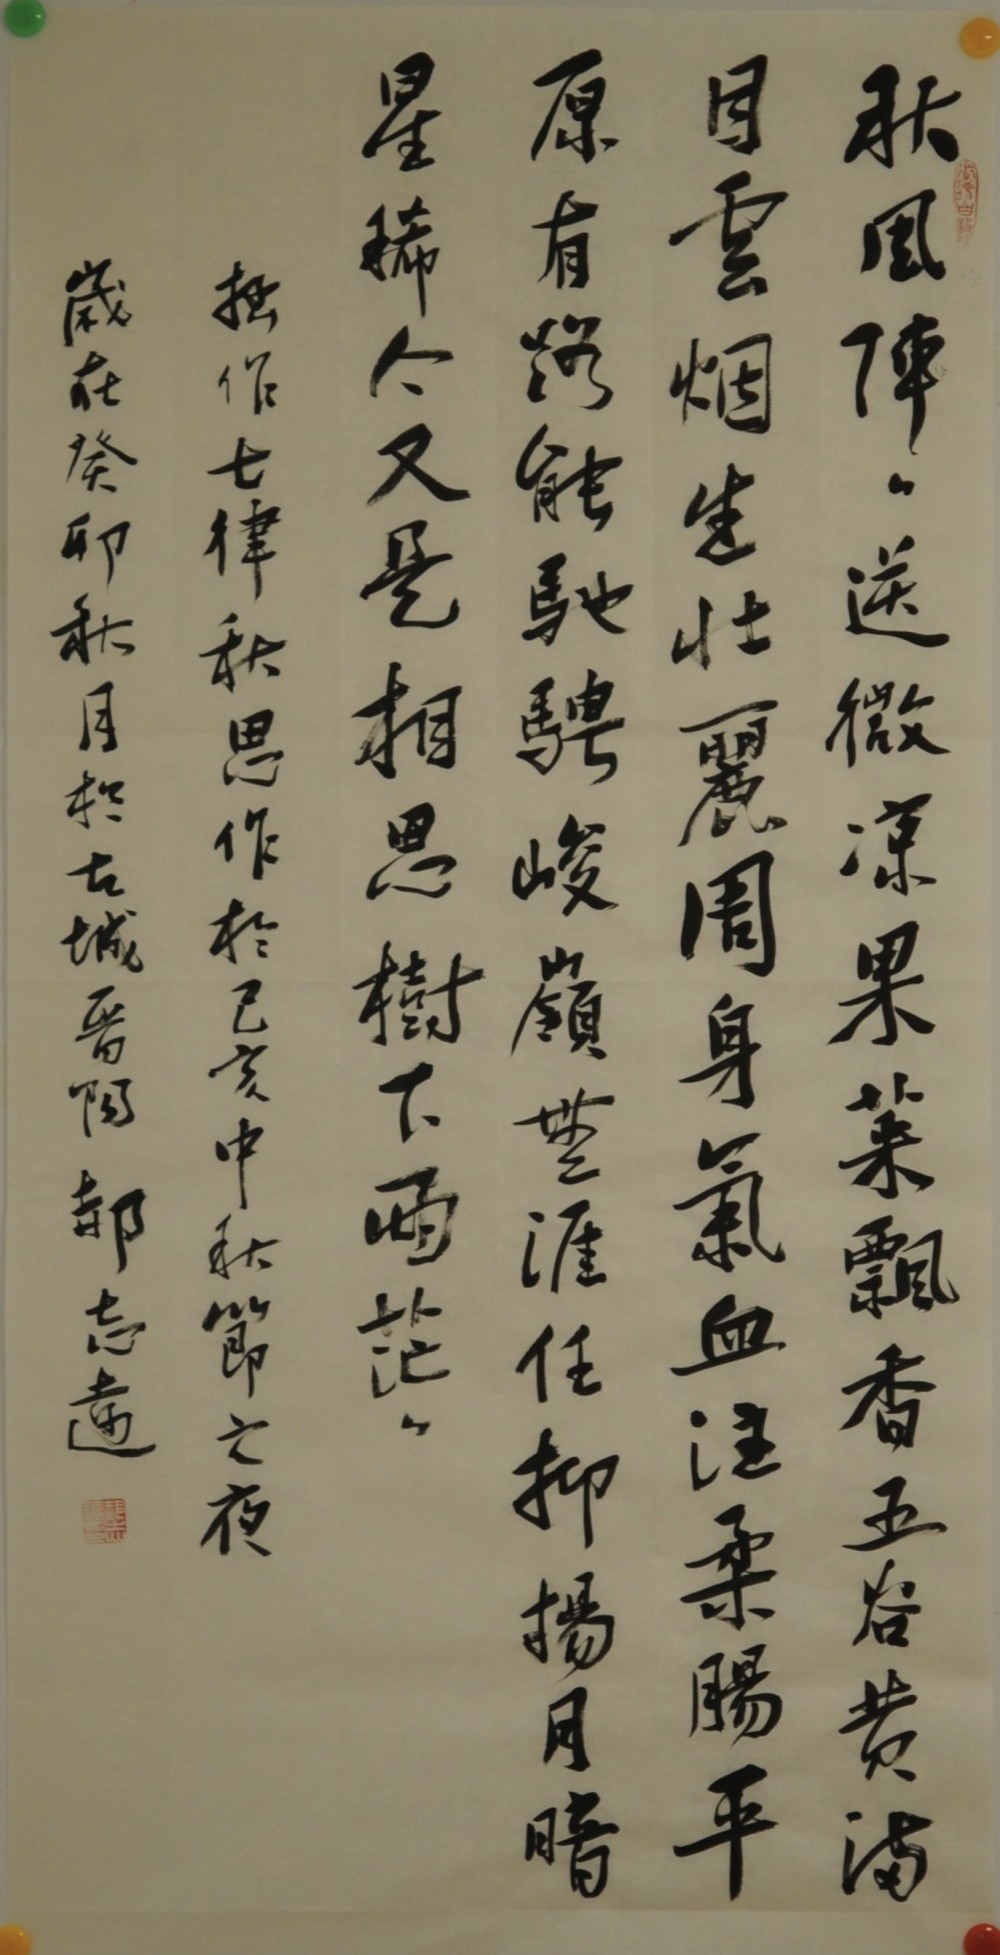 秋風陣々送微涼果菜飄香五谷黄滿
目雲烟生壮麗周身氣血注柔腸平
原有路能馳騁峻嶺無涯任抑揚月暗
星稀今又是相思樹下兩茫々
拙作七律秋思作於己亥中秋節之夜
歲在癸卯秋月於古城晋陽郝志遠